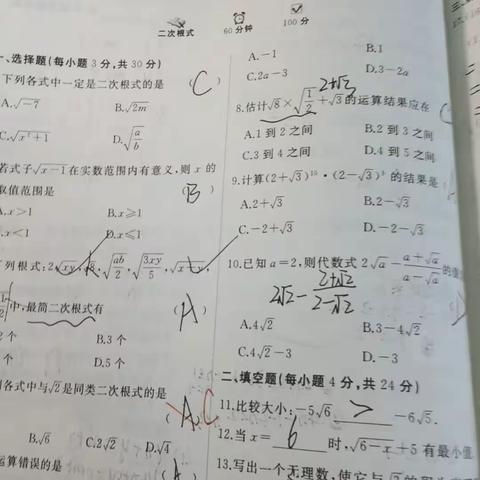 二次根式
60分钟
100分
一、选择题(每小题3分,共30分)
下列各式中一定是二次根式的是
( C )
A.√-7
B.√2m
C.√x²+1
D.√a/b
若式子√x-1在实数范围内有意义,则x的
取值范围是
( B )
A.x>1
B.x≥1
x<1
D.x≤1
列根式:2√xy,√8,√ab/2,√3xy/5,
中,最简二次根式有
( A )
2个
B.3个
个
D.5个
各式中与√2是同类二次根式的是
A C
B.√6
C.2√2
D.√4
运算错误的是
A.-1
B.1
C.2a-3
D.3-2a
2+√2
8.估计√8×√1/2+√3的运算结果应在
A.1到2之间
B.2到3之间
C.3到4之间
D.4到5之间
9.计算(2+√3)¹⁰·(2-√3)⁹的结果是
A.2+√3
B.2-√3
C.-2+√3
D.-2-√3
10.已知a=2,则代数式2√a-(a+√a)/(a-√a)的值
2√2-(2+√2)/(2-√2)
A.4√2
B.3-4√2
C.4√2-3
D.-3
二、填空题(每小题4分,共24分)
11.比较大小:-5√6 > -6√5.
12.当x= 6 时,√6-x+5有最小值
13.写出一个无理数,使它与